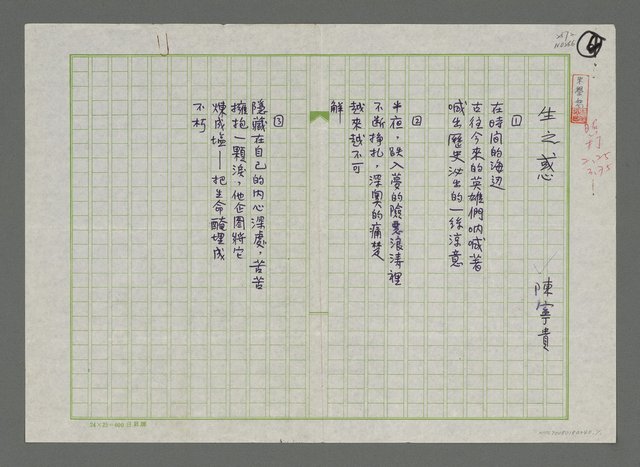 生之惑
陳寧貴
1
在時間的海边
古往今來的英雄們吶喊著
喊出歷史泌出的一絲涼意
2
半夜，跌入夢的險惡浪濤裡
不斷掙扎，深奧的痛楚
越來越不可
解
3
隱藏在自己的內心深處，苦苦
擁抱一顆淚，他企圖將它
煉成塩——把生命醃埋成
不朽
24×25＝600